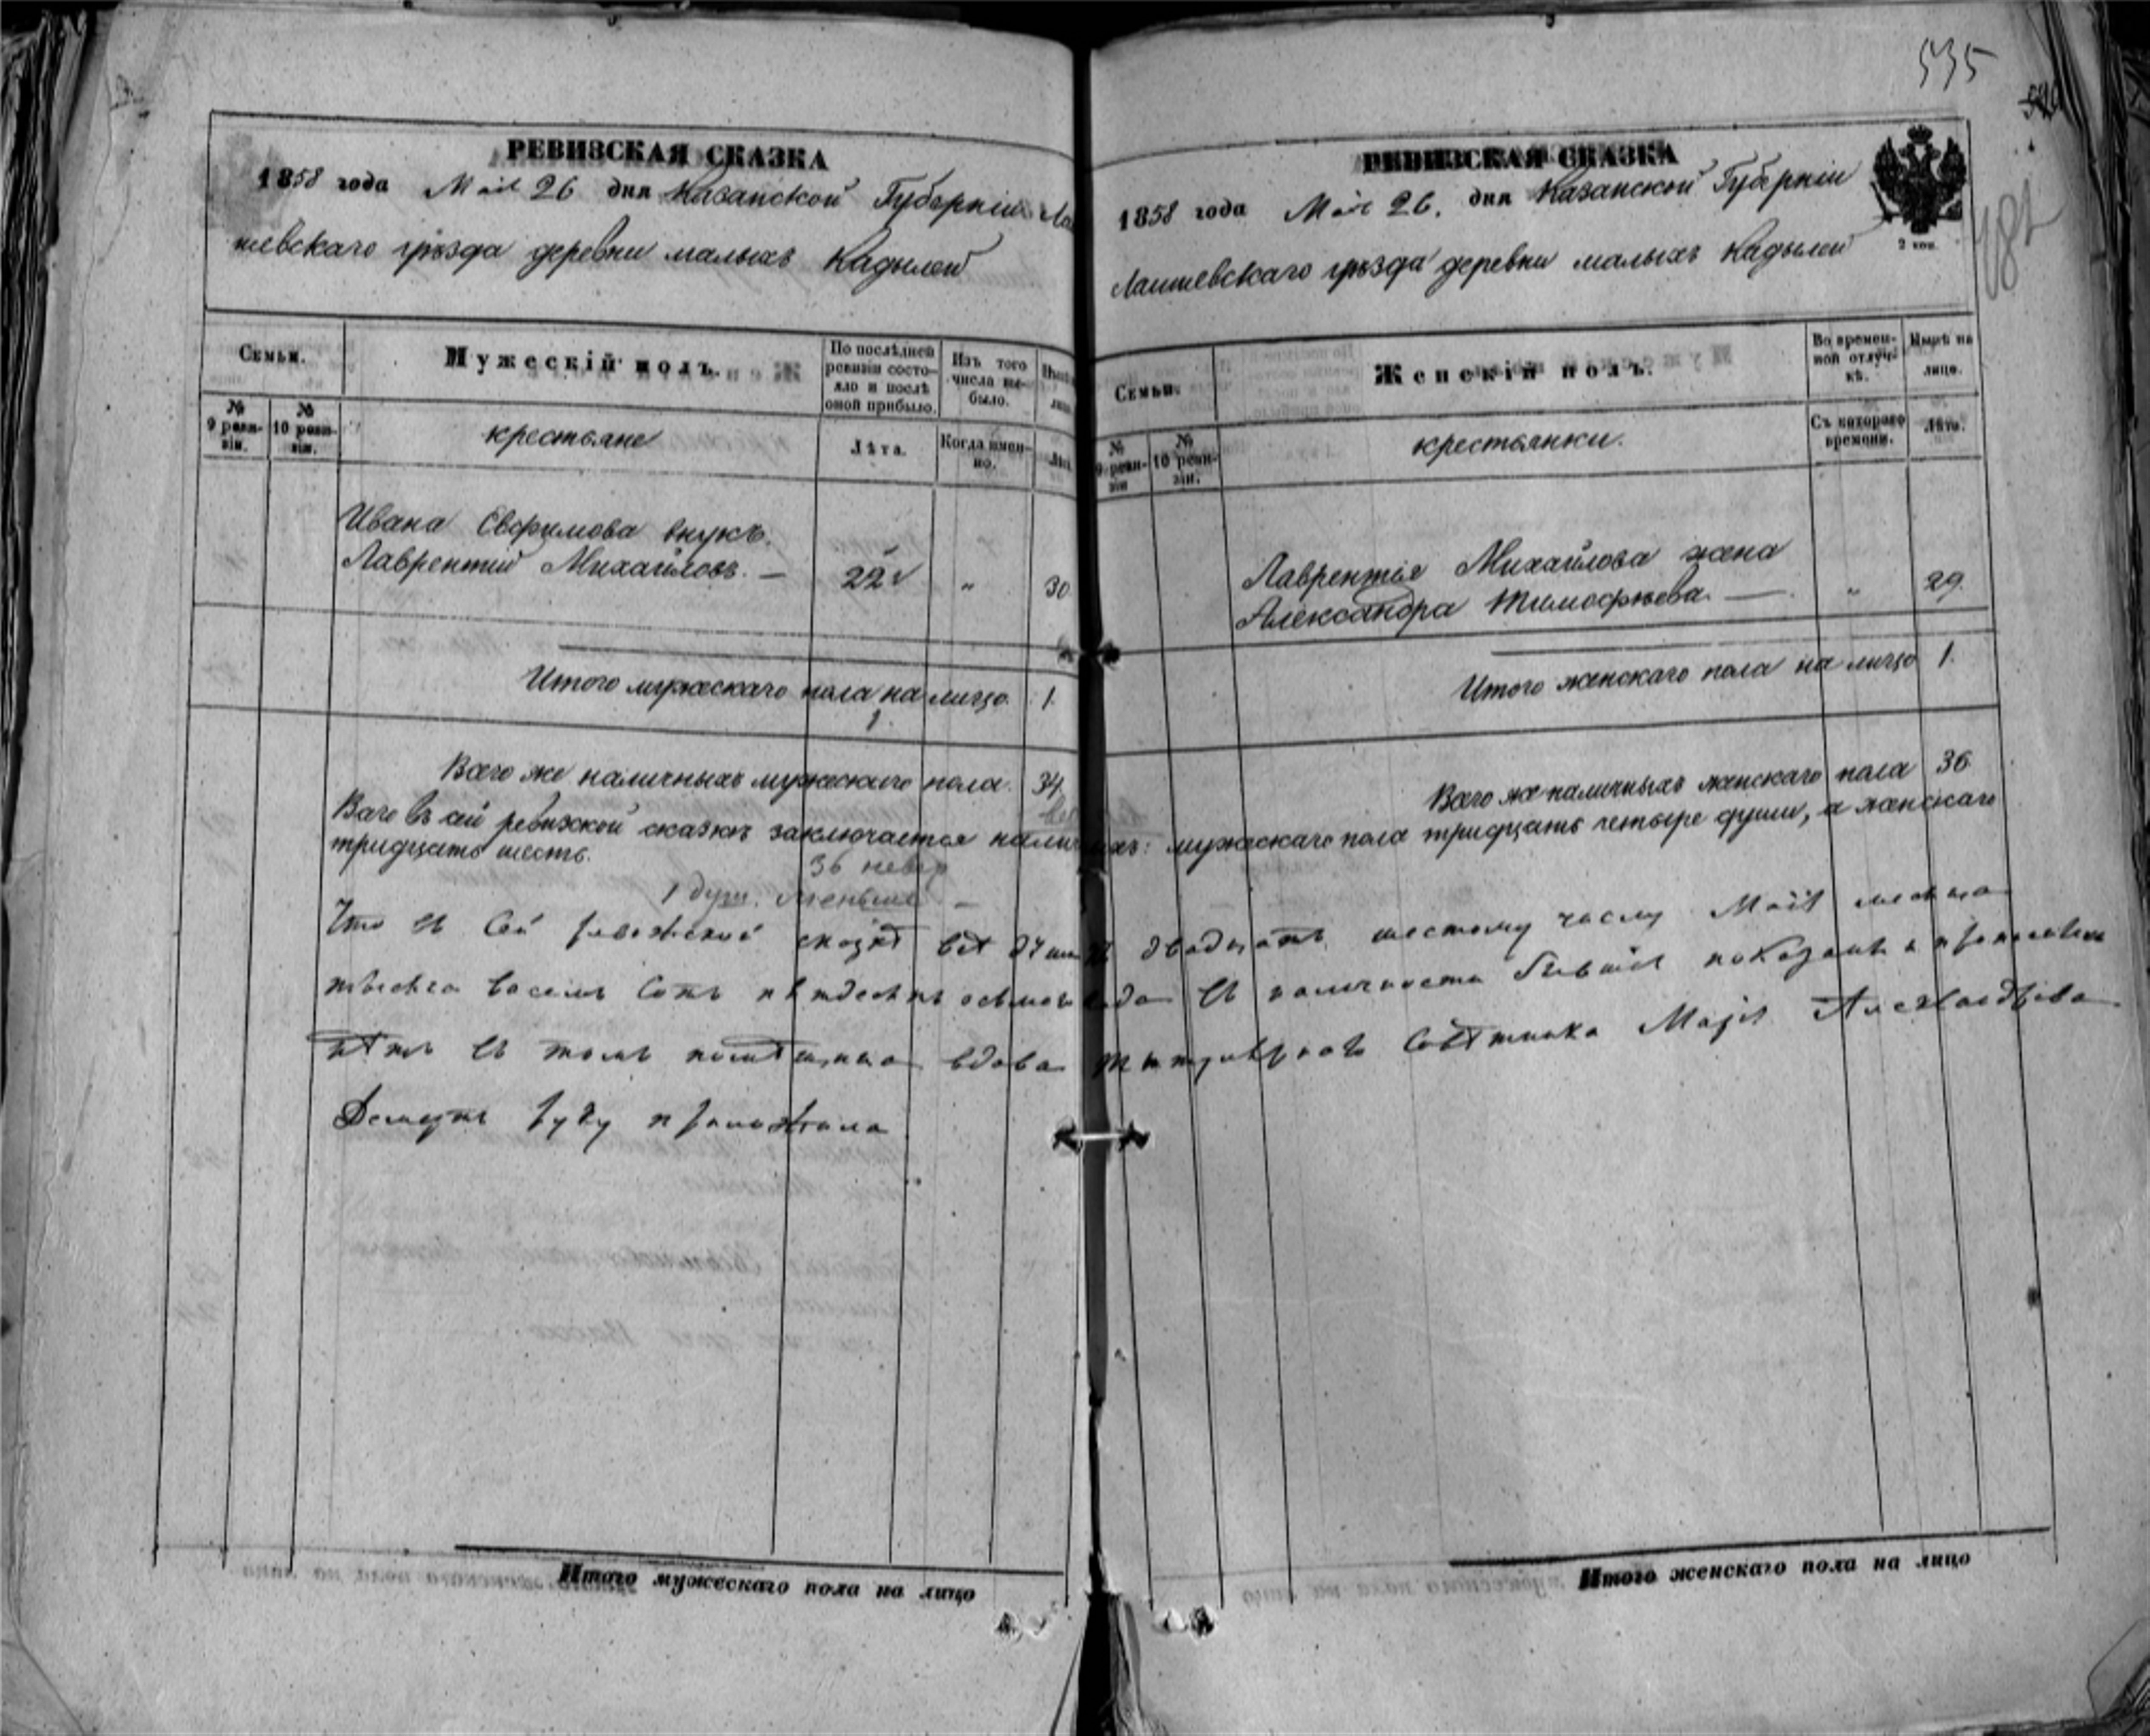 535
РЕВИЗСКАЯ СКАЗКА
1858 года Мая 26 дня Казанской Губерніи Ла
ишевскаго уѣзда деревни малыхъ Кадылей
Семьи.
Мужескій полъ.
По послѣдней ревизіи состояло и послѣ оной прибыло.
Изъ того числа выбыло.
№ 9 ревизіи.
№ 10 ревизіи.
крестьяне
Лѣта.
Когда именно.
Ивана Евфимова внукъ.
Лаврентій Михайловъ. — 22 " 30
Итого мужескаго пола на лицо. 1.
1.
Всего же наличныхъ мужескаго пола. 34
РЕВИЗСКАЯ СКАЗКА
1858 года Мая 26. дня Казанской Губерніи
Лаишевскаго уѣзда деревни малыхъ Кадылей
2 коп.
Семьи.
Женскій полъ.
Во временной отлучкѣ.
Нынѣ на лицо.
№ 9 ревизіи
№ 10 ревизіи.
крестьянки.
Съ котораго времени.
Лѣта.
Лаврентья Михайлова жена
Александра Тимофѣева. — " 29.
Итого женскаго пола на лицо 1.
Всего же наличныхъ женскаго пола 36
Всего въ сей ревизской сказкѣ заключается наличныхъ: мужескаго пола тридцать четыре души, а женскаго
тридцать шесть.
36 невер
1 душ. меньше —
Что въ сей ревизской сказкѣ всѣ души къ двадцать шестому числу Мая месяца
тысяча восемь сотъ пятдесятъ осьмаго года въ наличности бывшия показаны и прописныхъ
нѣтъ въ томъ помѣщица вдова титулярнаго совѣтника Марія Александрова
руку приложила
Итого мужескаго пола на лицо
Итого женскаго пола на лицо